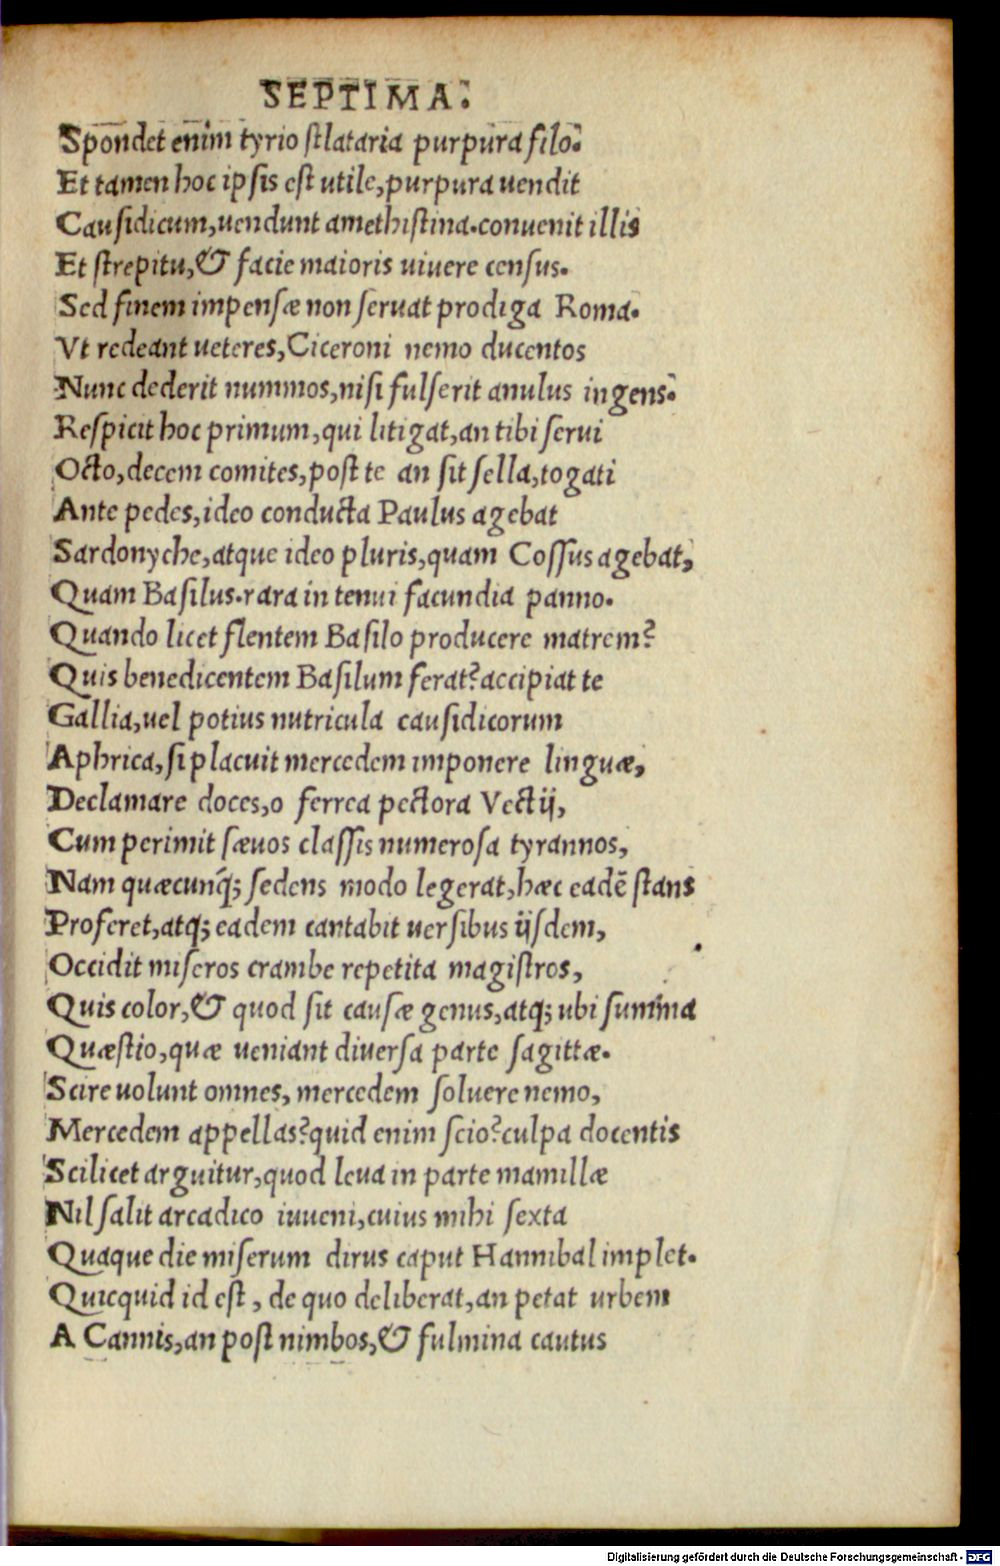 SEPTIMA.
Spondet enim tyrio stlataria purpura filo.
Et tamen hoc ipsis est utile, purpura uendit
Causidicum, uendunt amethistina. conuenit illis
Et strepitu, & facie maioris uiuere census.
Sed finem impensæ non seruat prodiga Roma.
Vt redeant ueteres, Ciceroni nemo ducentos
Nunc dederit nummos, nisi fulserit anulus ingens.
Respicit hoc primum, qui litigat, an tibi serui
Octo, decem comites, post te an sit sella, togati
Ante pedes, ideo conducta Paulus agebat
Sardonyche, atque ideo pluris, quam Cossus agebat,
Quam Basilus. rara in tenui facundia panno.
Quando licet flentem Basilo producere matrem?
Quis benedicentem Basilum ferat? accipiat te
Gallia, uel potius nutricula causidicorum
Aphrica, si placuit mercedem imponere linguæ,
Declamare doces, o ferrea pectora Vectij,
Cum perimit sæuos classis numerosa tyrannos,
Nam quæcunq; sedens modo legerat, hæc eadē stans
Proferet, atq; eadem cantabit uersibus ijsdem,
Occidit miseros crambe repetita magistros,
Quis color, & quod sit causæ genus, atq; ubi summa
Quæstio, quæ ueniant diuersa parte sagittæ.
Scire uolunt omnes, mercedem soluere nemo,
Mercedem appellas? quid enim scio? culpa docentis
Scilicet arguitur, quod leua in parte mamillæ
Nil salit arcadico iuueni, cuius mihi sexta
Quaque die miserum dirus caput Hannibal implet.
Quicquid id est, de quo deliberat, an petat urbem
A Cannis, an post nimbos, & fulmina cautus
Digitalisierung gefördert durch die Deutsche Forschungsgemeinschaft - DFG